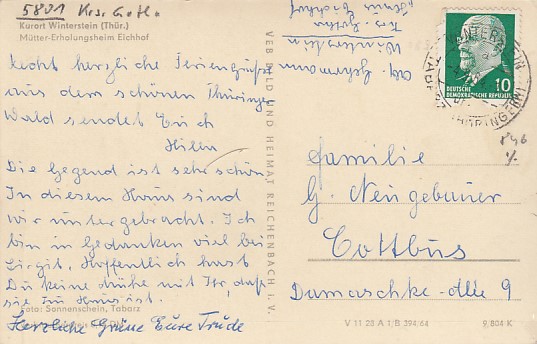 5801 Krs. Gotha
Kurort Winterstein (Thür.)
Mütter-Erholungsheim Eichhof
Recht herzliche Feriengrüße
aus dem schönen Thüringer
Wald sendet Euch
Die Gegend ist sehr schön
In diesem Haus sind
wir untergebracht. Ich
bin in Gedanken viel bei
Birgit, Hoffentlich hast
Du keine Mühe mit Ihr, daß
sie zu Haus ist.
Foto: Sonnenschein, Tabarz
Herzliche Grüße Eure Trude
VEB BILD UND HEIMAT REICHENBACH I. V.
Abs. Gehrmann
Winterstein
Krs. Gotha
Eichhof
DEUTSCHE
DEMOKRATISCHE REPUBLIK
10
Familie
G. Neugebauer
Cottbus
Damaschke-Allee 9
V 11 28 A 1 B 394/64
9 804 K